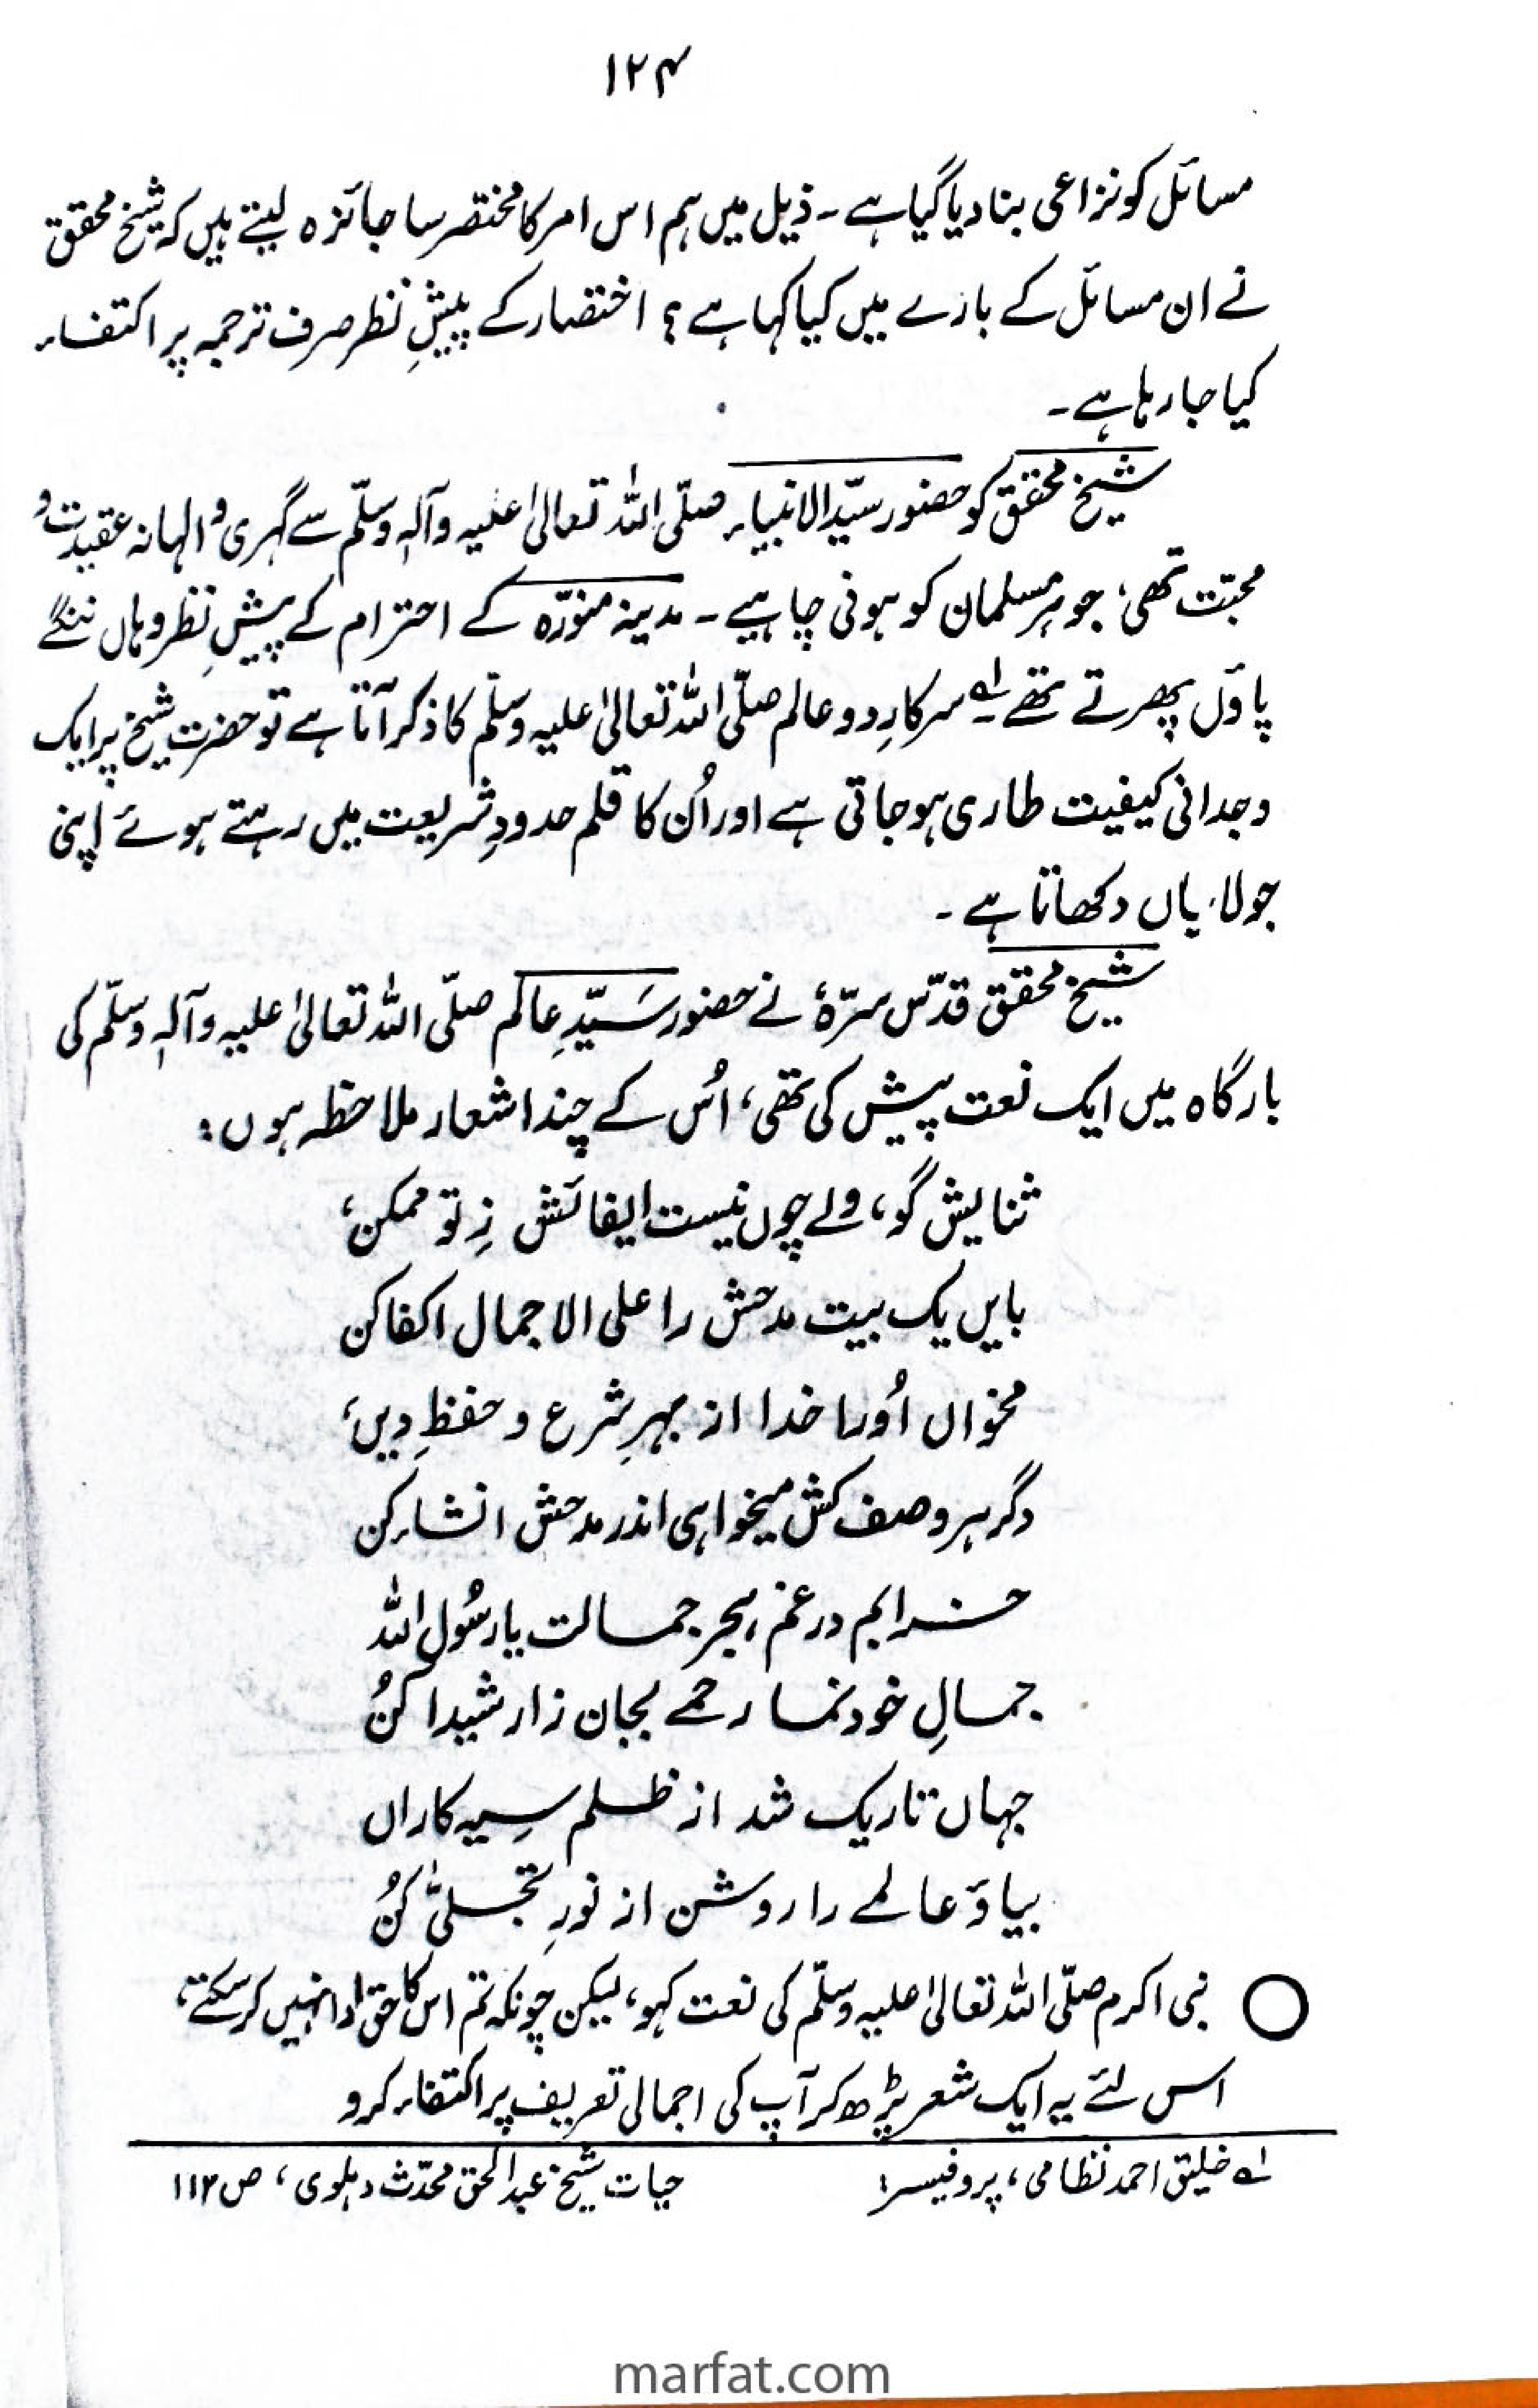 ۱۲۴
مسائل کو نزاعی بنا دیا گیا ہے ۔ ذیل میں ہم اس امر کا مختصر سا جائزہ لیتے ہیں کہ شیخ محقق
نے ان مسائل کے بارے میں کیا کہا ہے ؟ اختصار کے پیشِ نظر صرف ترجمہ پر اکتفاء
کیا جا رہا ہے ۔
شیخ محقق کو حضور سیّد الانبیاء صلّی اللہ تعالیٰ علیہ وآلہٖ وسلّم سے گہری والہانہ عقیدت و
محبّت تھی، جو ہر مسلمان کو ہونی چاہیے ۔ مدینہ منوّرہ کے احترام کے پیشِ نظر وہاں ننگے
پاؤں پھرتے تھے ۱؎ سرکارِ دو عالم صلّی اللہ تعالیٰ علیہ وسلّم کا ذکر آتا ہے تو حضرت شیخ پر ایک
وجدانی کیفیت طاری ہو جاتی ہے اور اُن کا قلم حدودِ شریعت میں رہتے ہوئے اپنی
جولانیاں دکھاتا ہے ۔
شیخ محقق قدّس سرّہٗ نے حضور سَیّدِ عالَم صلّی اللہ تعالیٰ علیہ وآلہٖ وسلّم کی
بارگاہ میں ایک نعت پیش کی تھی، اُس کے چند اشعار ملاحظہ ہوں :
ثنایش گو، ولے چوں نیست ایفائش زِ تو ممکن،
بایں یک بیت مدحش را علی الاجمال اکفا کن
مخواں اُو را خدا از بہرِ شرع و حفظِ دیں،
دگر ہر وصف کش میخواہی اندر مدحش انشاء کن
خرابم در غمِ ہجرِ جمالت یا رسُول اللہ
جمالِ خود نما رحمے بجان زار شیدا کُن
جہاں تاریک شد از ظلم سیہ کاراں
بیا وَ عالمے را روشن از نورِ تجلّیٰ کُن
○ نبی اکرم صلّی اللہ تعالیٰ علیہ وسلّم کی نعت کہو، لیکن چونکہ تم اس کا حق ادا نہیں کر سکتے،
اس لئے یہ ایک شعر پڑھ کر آپ کی اجمالی تعریف پر اکتفاء کرو
۱؎ خلیق احمد نظامی، پروفیسر : حیات شیخ عبدالحق محدّث دہلوی ، ص ۱۱۲
marfat.com